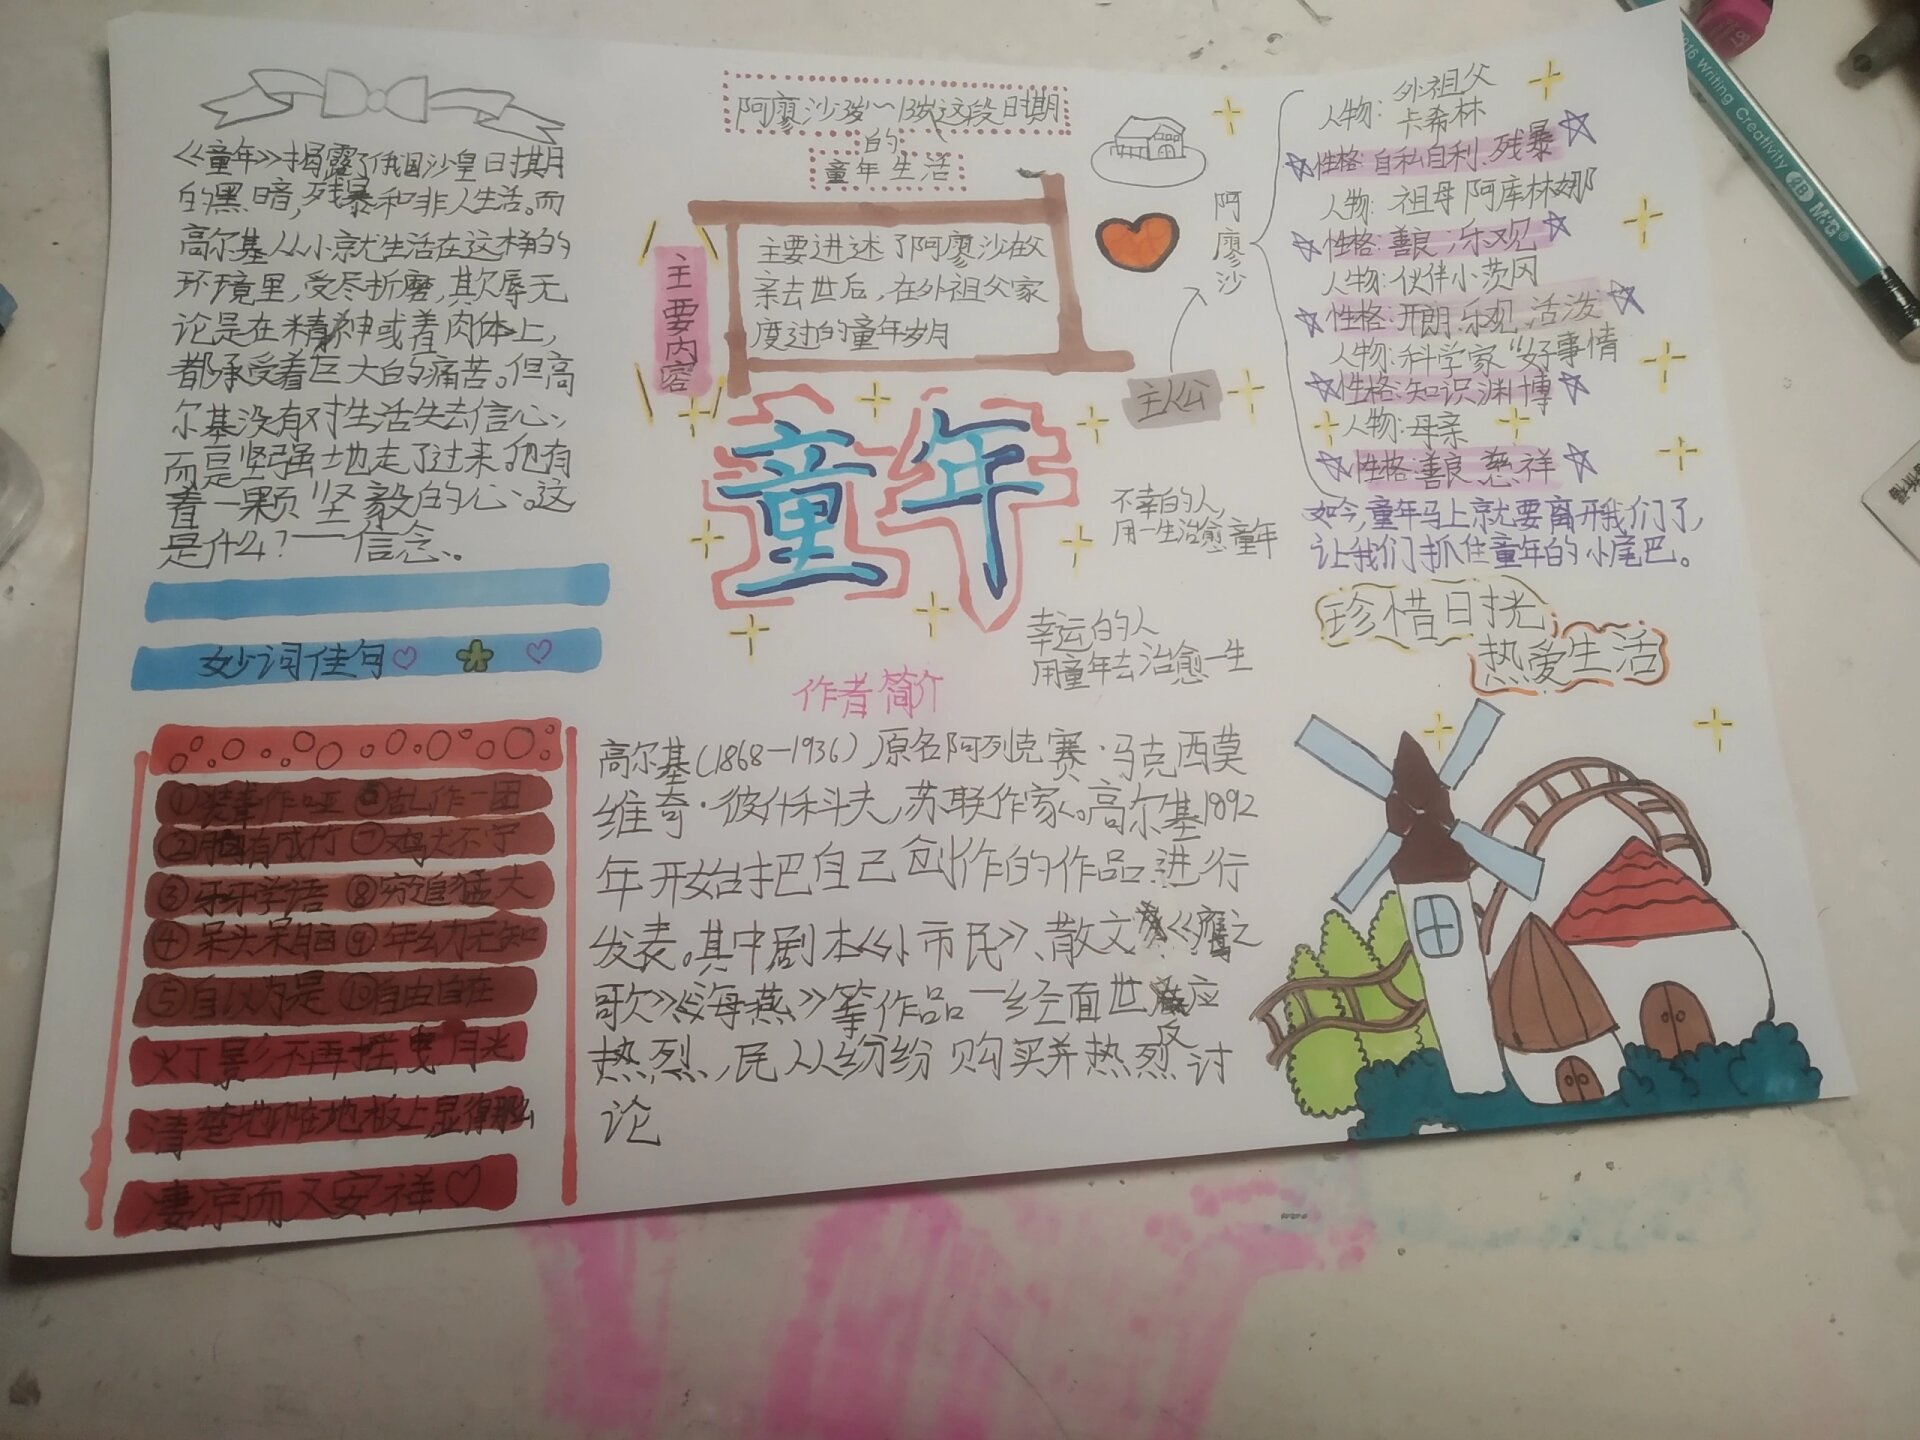 《童年》揭露了俄国沙皇日时期
的黑暗,残暴和非人生活。而
高尔基从小就生活在这样的
环境里,受尽折磨,欺辱无
论是在精神或者肉体上,
都承受着巨大的痛苦。但高
尔基没有对生活失去信心,
而是坚强地走了过来。他有
着一颗坚毅的心。这
是什么?——信念。
妙词佳句
①装聋作哑 ⑥乱作一团
②胸有成竹 ⑦鸡犬不宁
③牙牙学语 ⑧穷追猛大
④呆头呆脑 ⑨年幼无知
⑤自以为是 ⑩自由自在
灯影不再摇曳月光
清楚地陪地板上显得那么
凄凉而又安祥
阿廖沙3岁~13岁这段日时期
的
童年生活
主要内容
主要进述了阿廖沙在父
亲去世后,在外祖父家
度过的童年岁月
童年
主人公
阿廖沙
不幸的人,
用一生治愈童年
幸运的人
用童年去治愈一生
作者简介
高尔基(1868—1936),原名阿列克赛·马克西莫
维奇·彼什科夫,苏联作家。高尔基1892
年开始把自己创作的作品进行
发表。其中剧本《小市民》、散文《鹰之
歌》《海燕》等作品一经面世反应
热烈,民从纷纷购买并热烈讨
论
外祖父
人物:卡希林
性格:自私自利、残暴
人物:祖母阿库林娜
性格:善良、乐观
人物:伙伴小茨冈
性格:开朗、乐观、活泼
人物:科学家"好事情
性格:知识渊博
人物:母亲
性格:善良、慈祥
如今,童年马上就要离开我们了,
让我们抓住童年的小尾巴。
珍惜日时光
热爱生活
2016 Writing Creativity 2B M&G